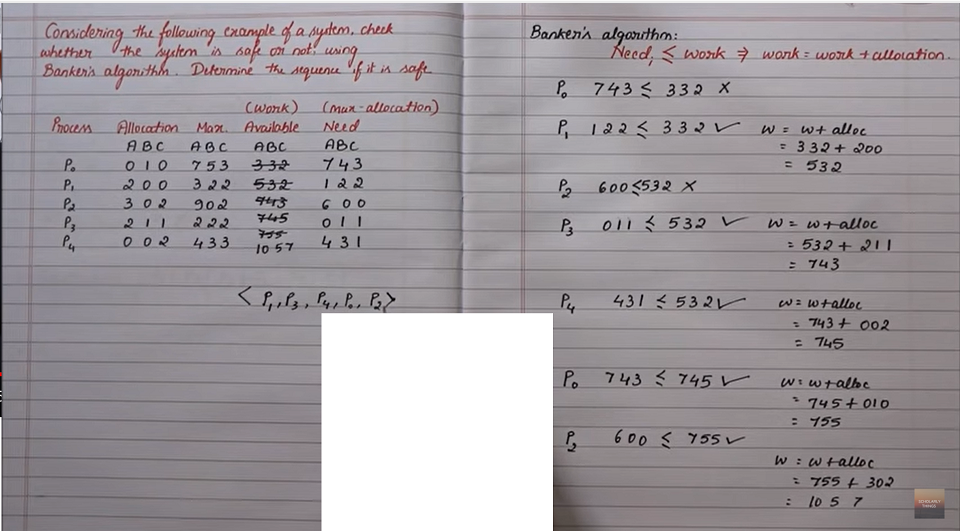 Considering the following example of a system, check
whether the system is safe or not, using
Banker's algorithm. Determine the sequence if it is safe
(Work) (Max-allocation)
Process Allocation Max. Available Need
A B C A B C A B C A B C
P₀ 0 1 0 7 5 3 3 3 2 7 4 3
P₁ 2 0 0 3 2 2 5 3 2 1 2 2
P₂ 3 0 2 9 0 2 7 4 3 6 0 0
P₃ 2 1 1 2 2 2 7 4 5 0 1 1
7 5 5
P₄ 0 0 2 4 3 3 10 5 7 4 3 1
< P₁, P₃, P₄, P₀, P₂ >
Banker's algorithm:
Needᵢ ≤ work ⇒ work = work + allocation.
P₀ 7 4 3 ≤ 3 3 2 ×
P₁ 1 2 2 ≤ 3 3 2 ✓ W = W + alloc
= 3 3 2 + 2 0 0
= 5 3 2
P₂ 6 0 0 ≤ 5 3 2 ×
P₃ 0 1 1 ≤ 5 3 2 ✓ W = W + alloc
= 5 3 2 + 2 1 1
= 7 4 3
P₄ 4 3 1 ≤ 5 3 2 ✓ W = W + alloc
= 7 4 3 + 0 0 2
= 7 4 5
P₀ 7 4 3 ≤ 7 4 5 ✓ W = W + alloc
= 7 4 5 + 0 1 0
= 7 5 5
P₂ 6 0 0 ≤ 7 5 5 ✓
W = W + alloc
= 7 5 5 + 3 0 2
= 10 5 7
SCHOLARLY
THINGS